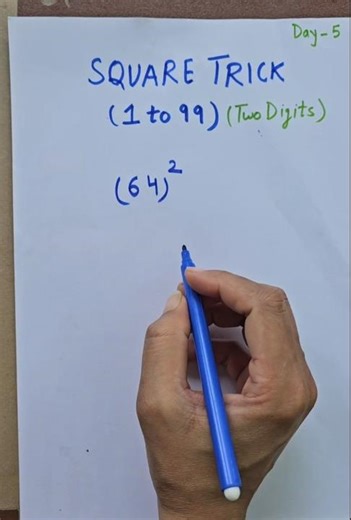 Day-5
SQUARE TRICK
(1 to 99) (Two Digits)
(64)²